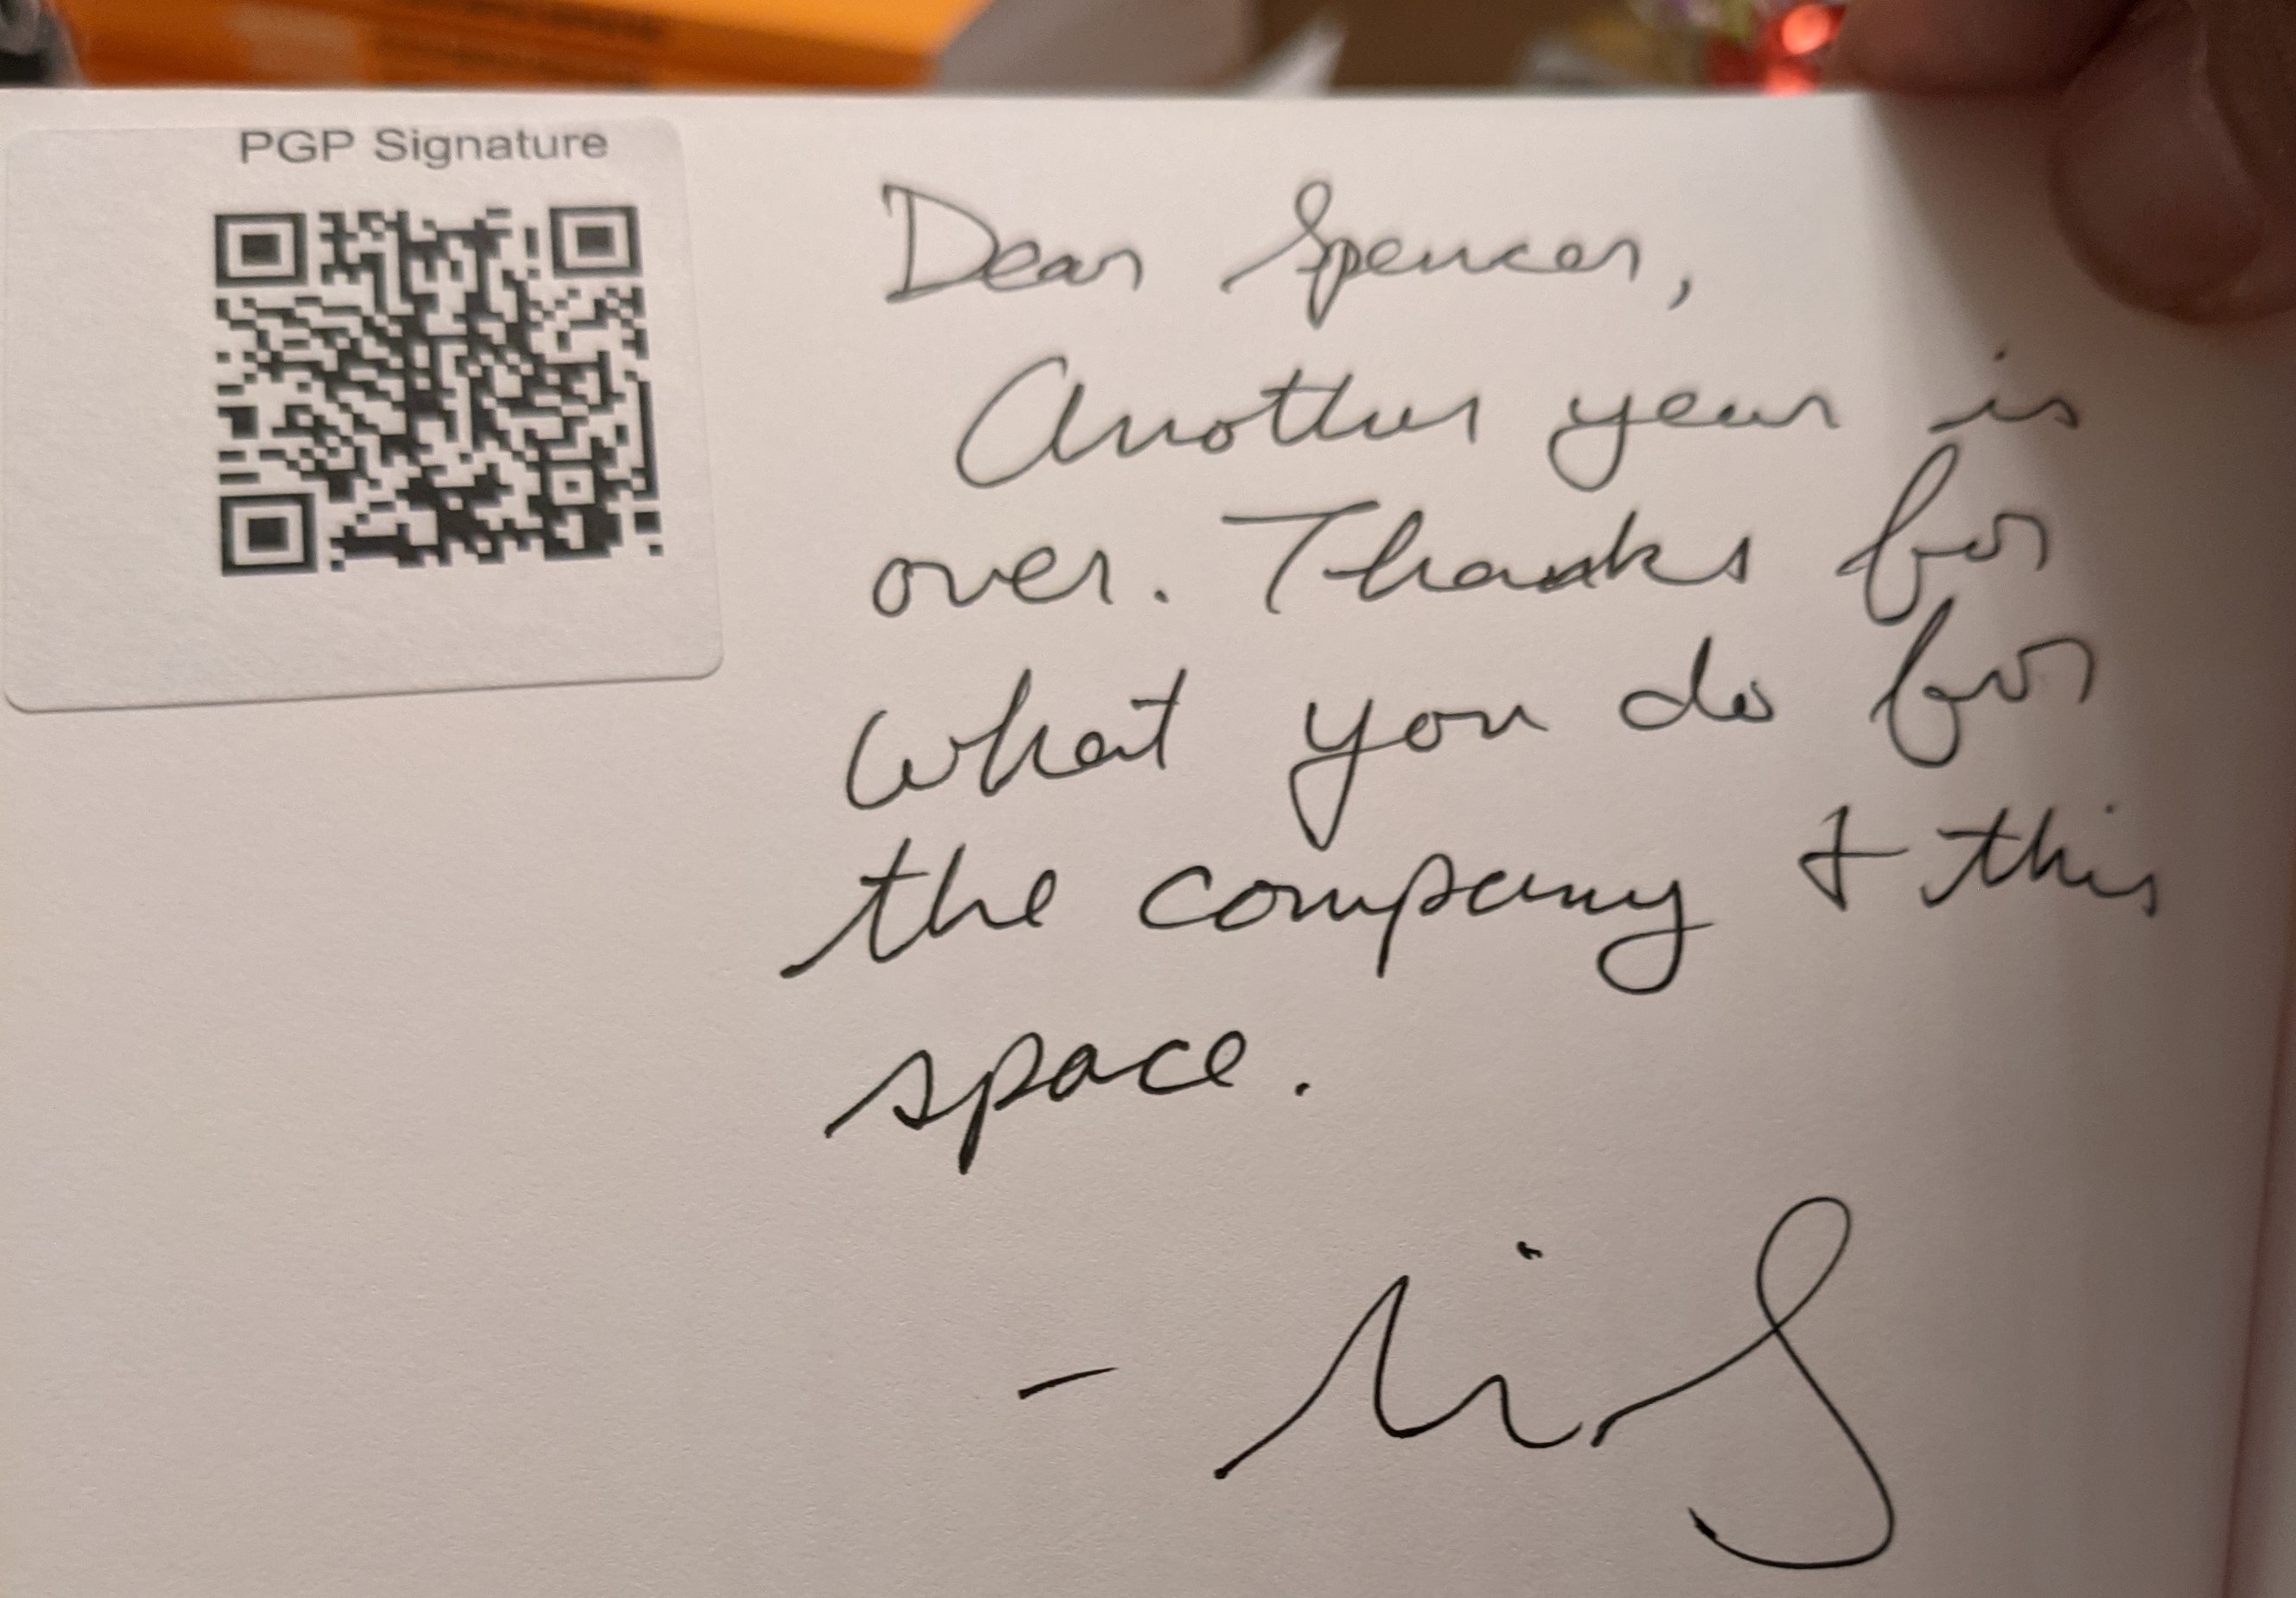 PGP Signature
Dear Spencer,
Another year is
over. Thanks for
what you do for
the company & this
space.
-